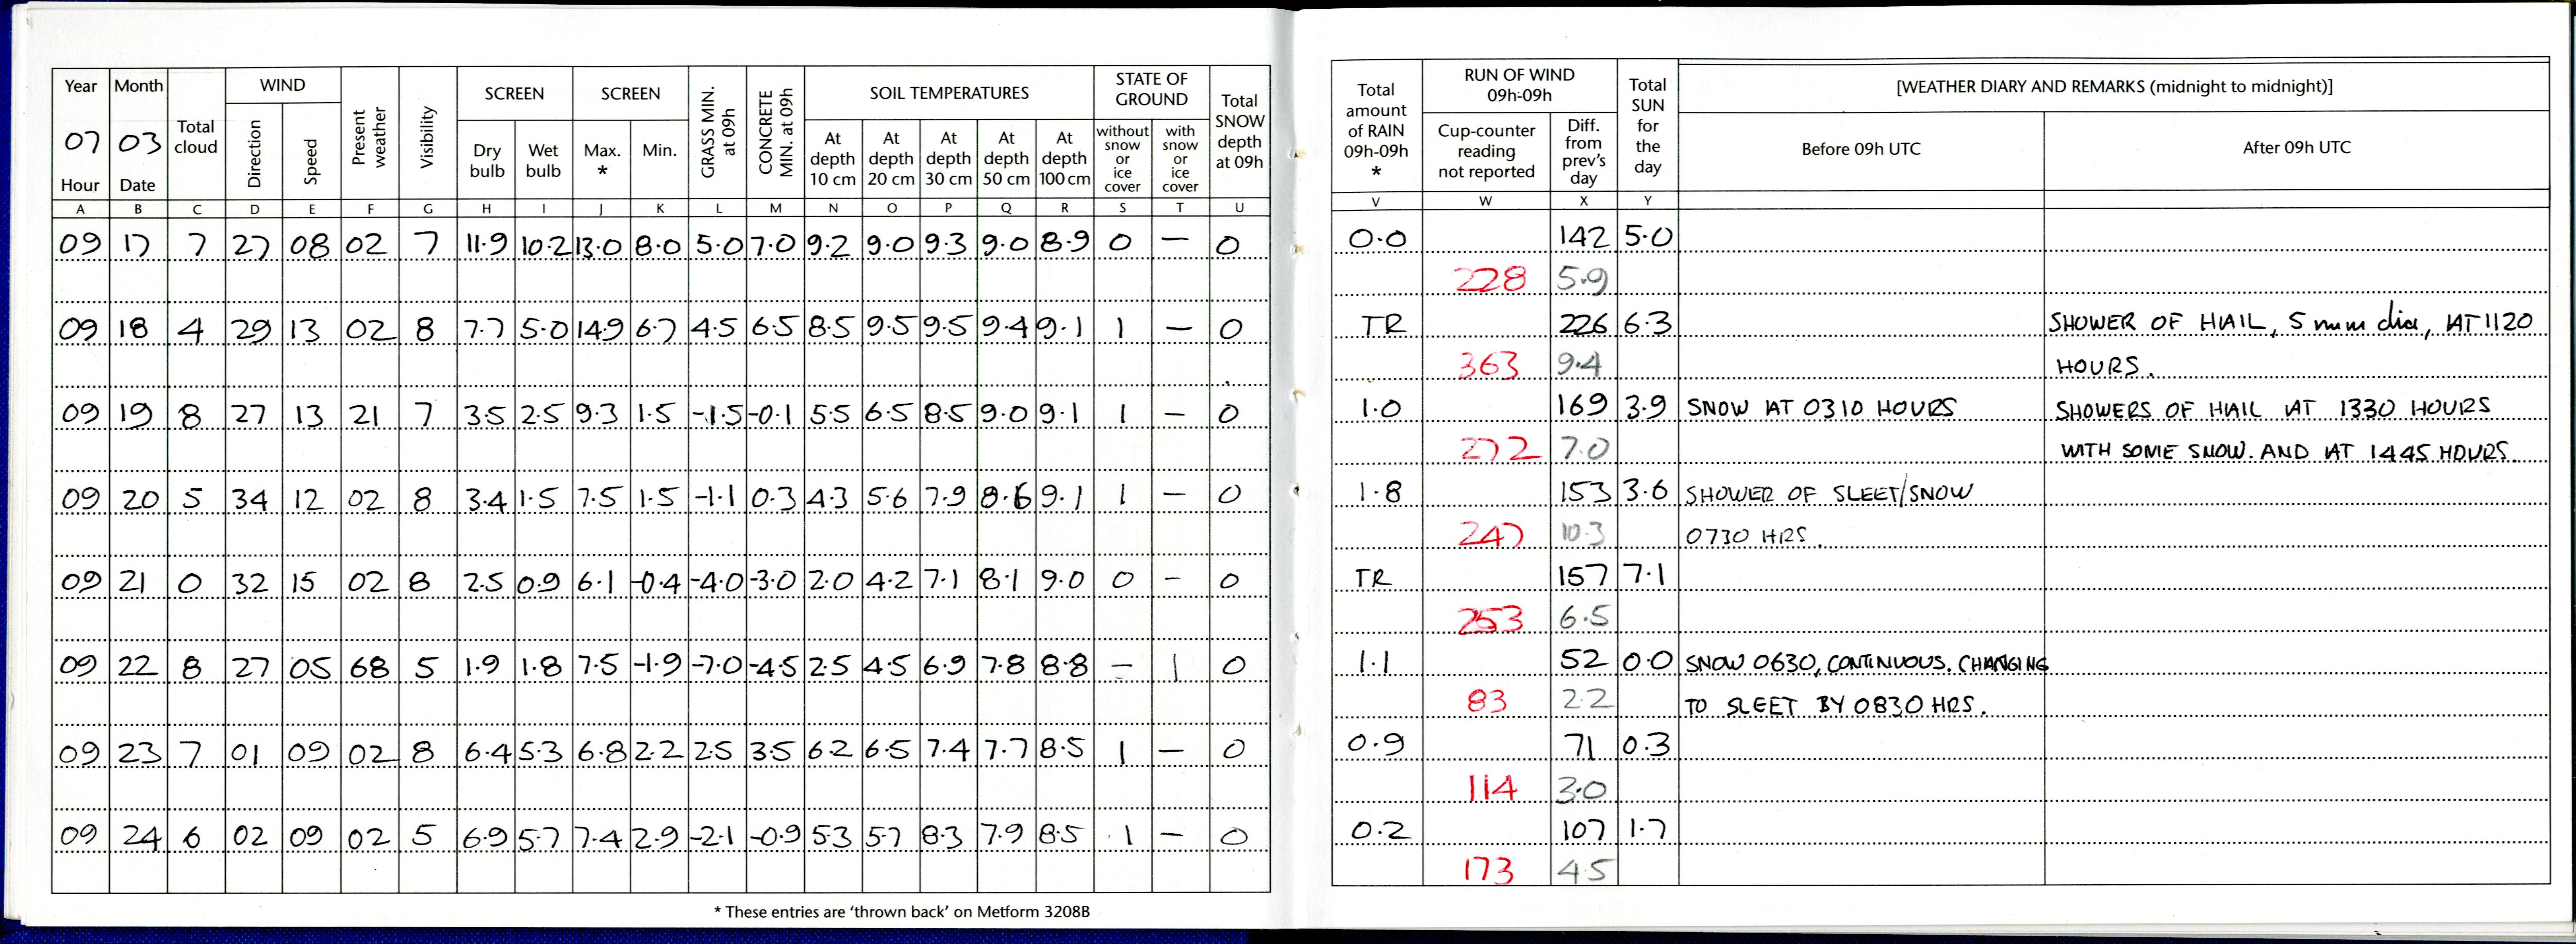 Year Month Total cloud WIND Present weather Visibility SCREEN SCREEN GRASS MIN. at 09h CONCRETE MIN. at 09h SOIL TEMPERATURES STATE OF GROUND Total SNOW depth at 09h
07 03 Direction Speed Dry bulb Wet bulb Max. * Min. At depth 10 cm At depth 20 cm At depth 30 cm At depth 50 cm At depth 100 cm without snow or ice cover with snow or ice cover
Hour Date
A B C D E F G H I J K L M N O P Q R S T U
09 17 7 27 08 02 7 11.9 10.2 13.0 8.0 5.0 7.0 9.2 9.0 9.3 9.0 8.9 0 — 0
09 18 4 29 13 02 8 7.7 5.0 14.9 6.7 4.5 6.5 8.5 9.5 9.5 9.4 9.1 1 — 0
09 19 8 27 13 21 7 3.5 2.5 9.3 1.5 -1.5 -0.1 5.5 6.5 8.5 9.0 9.1 1 — 0
09 20 5 34 12 02 8 3.4 1.5 7.5 1.5 -1.1 0.3 4.3 5.6 7.9 8.6 9.1 1 — 0
09 21 0 32 15 02 8 2.5 0.9 6.1 -0.4 -4.0 -3.0 2.0 4.2 7.1 8.1 9.0 0 — 0
09 22 8 27 05 68 5 1.9 1.8 7.5 -1.9 -7.0 -4.5 2.5 4.5 6.9 7.8 8.8 — 1 0
09 23 7 01 09 02 8 6.4 5.3 6.8 2.2 2.5 3.5 6.2 6.5 7.4 7.7 8.5 1 — 0
09 24 6 02 09 02 5 6.9 5.7 7.4 2.9 -2.1 -0.9 5.3 5.7 8.3 7.9 8.5 1 — 0
* These entries are 'thrown back' on Metform 3208B
Total amount of RAIN 09h-09h * RUN OF WIND 09h-09h Total SUN for the day [WEATHER DIARY AND REMARKS (midnight to midnight)]
Cup-counter reading not reported Diff. from prev's day Before 09h UTC After 09h UTC
V W X Y
0.0 142 5.0
228 5.9
TR 226 6.3 SHOWER OF HAIL, 5 mm dia, AT 1120
363 9.4 HOURS.
1.0 169 3.9 SNOW AT 0310 HOURS SHOWERS OF HAIL AT 1330 HOURS
272 7.0 WITH SOME SNOW. AND AT 1445 HOURS.
1.8 153 3.6 SHOWER OF SLEET/SNOW
247 10.3 0730 HRS.
TR 157 7.1
253 6.5
1.1 52 0.0 SNOW 0630, CONTINUOUS. CHANGING
83 2.2 TO SLEET BY 0830 HRS.
0.9 71 0.3
114 3.0
0.2 107 1.7
173 4.5